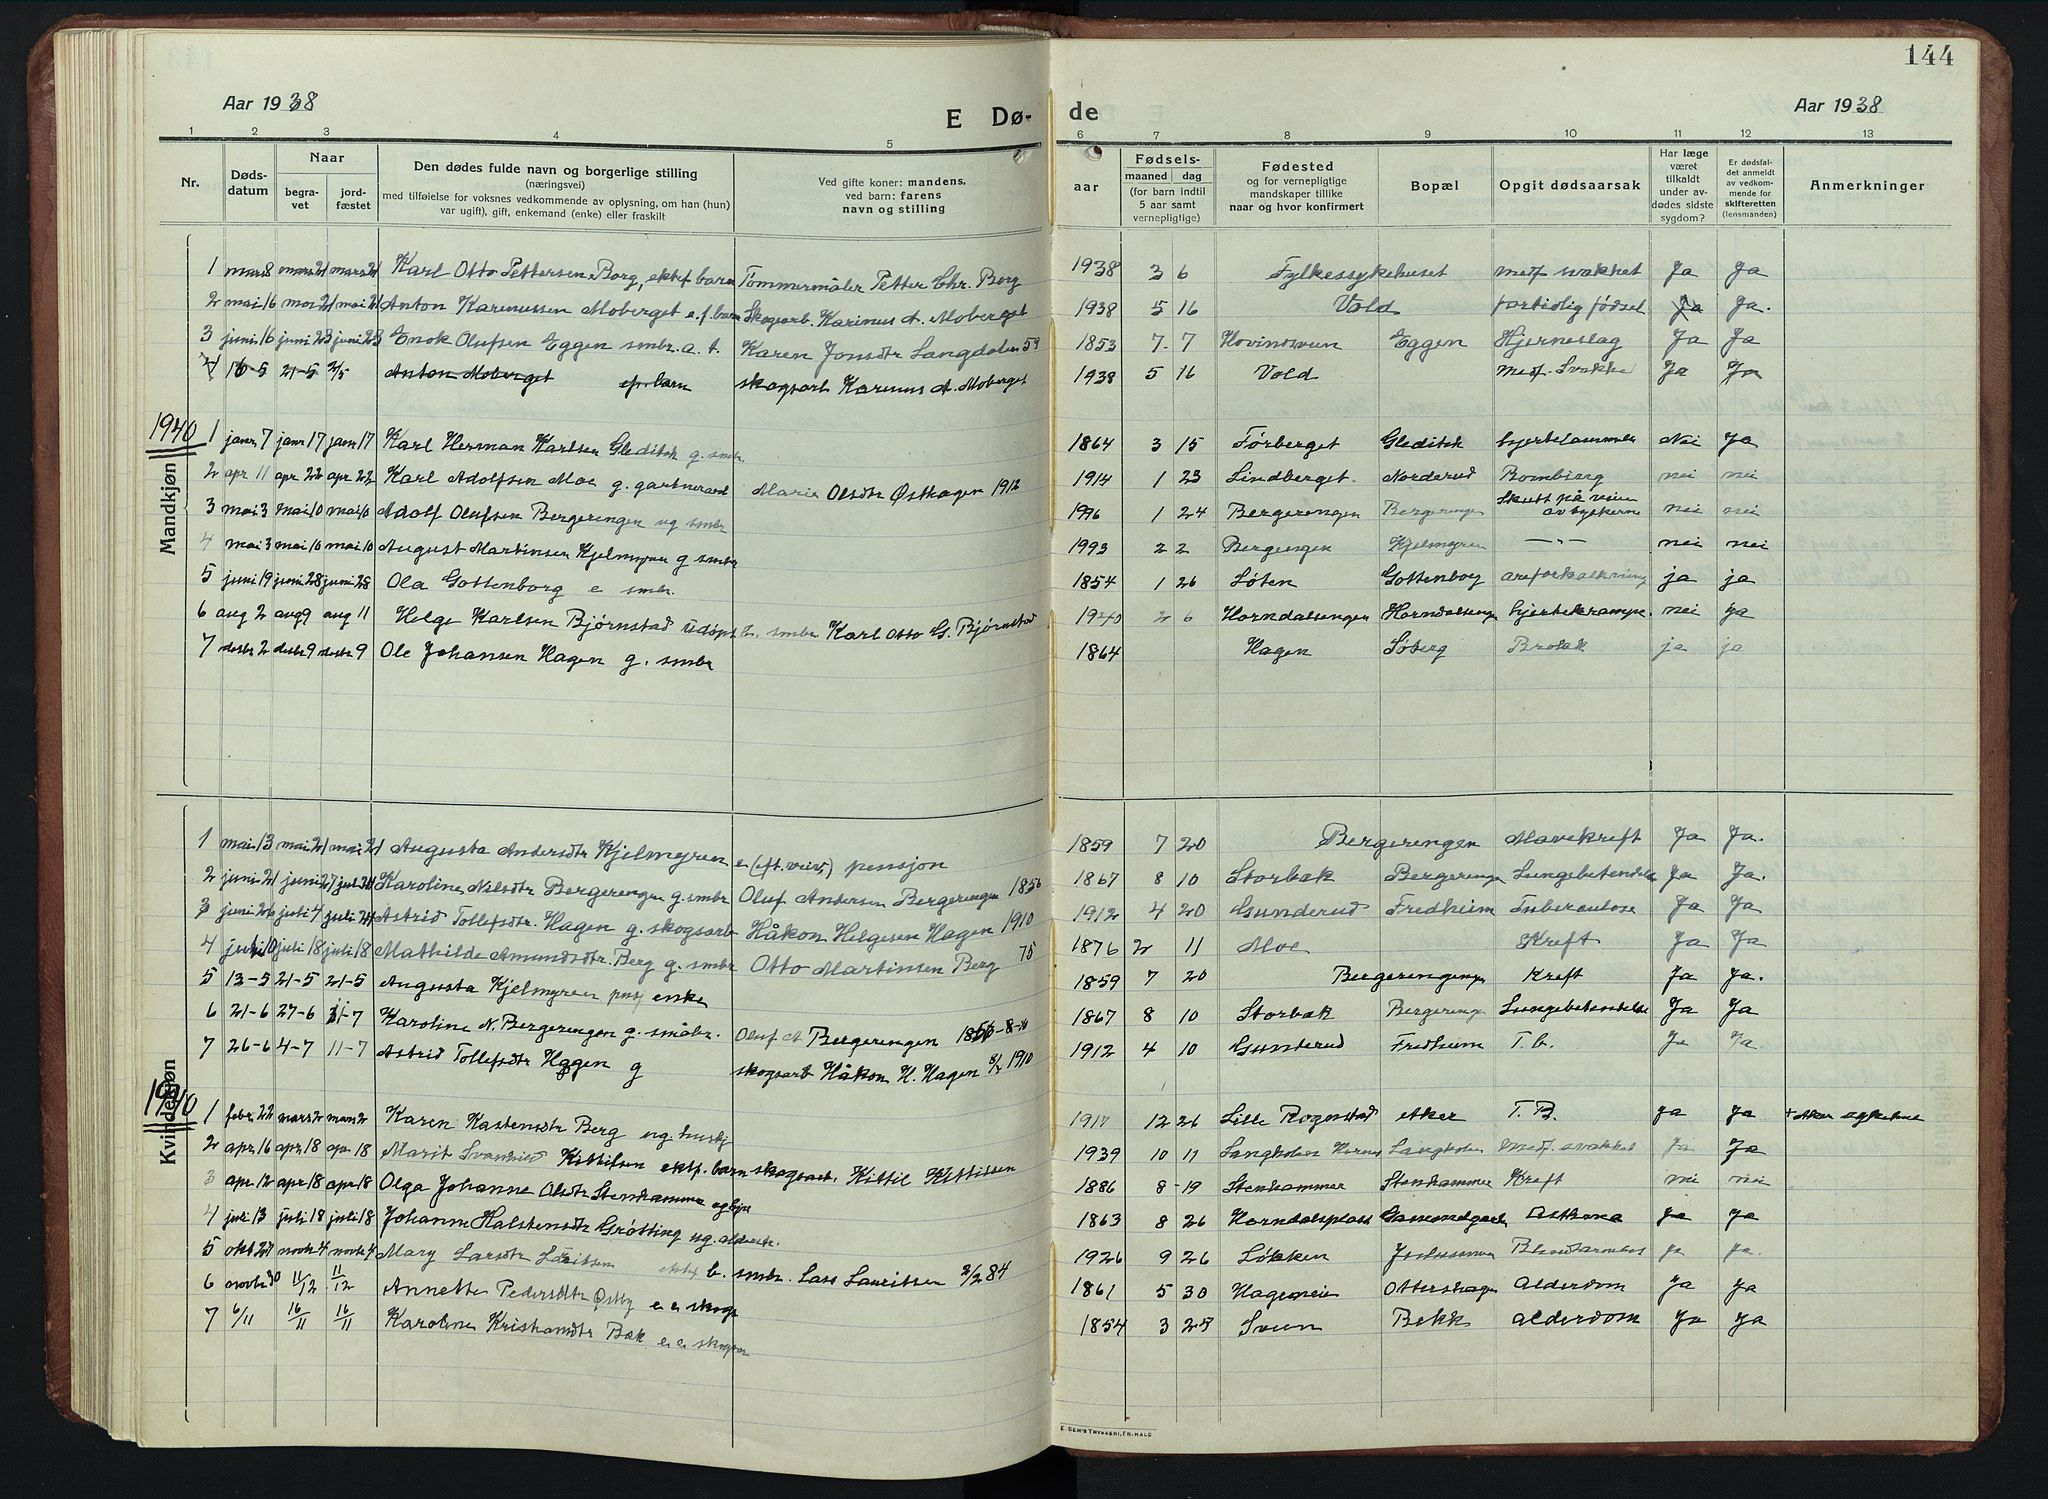 144
Aar 1938
E Dø-
de
Aar 1938
1 2 3 4 5 6 7 8 9 10 11 12 13
Nr.
Døds-
datum
Naar
begra-
vet
jord-
fæstet
Den dødes fulde navn og borgerlige stilling
(næringsvei)
med tilføielse for voksnes vedkommende av oplysning, om han (hun)
var ugift), gift, enkemand (enke) eller fraskilt
Ved gifte koner: mandens,
ved barn: farens
navn og stilling
aar
Fødsels-
maaned dag
(for barn indtil
5 aar samt
vernepligtige)
Fødested
og for vernepligtige
mandskaper tillike
naar og hvor konfirmert
Bopæl
Opgit dødsaarsak
Har læge
været
tilkaldt
under av-
dødes sidste
sygdom?
Er dødsfal-
det anmeldt
av vedkom-
mende for
skifteretten
(lensmanden)
Anmerkninger
Mandkjøn
1 mars 8 mars 21 mars 21 Karl Otto Pettersen Borg, ektef. barn Tømmermåler Petter Chr. Borg 1938 3 6 Fylkessykehuset medf. svakhet Ja Ja
2 mai 16 mai 21 mai 21 Anton Karinussen Moberget e.f. barn Skogsarb. Karinus A. Moberget 1938 5 16 Vold fortidlig fødsel Ja Ja.
3 juni 16 juni 23 juni 23 Enok Olufsen Eggen smbr. a. t. Karen Jonsdtr Langdalen 59 1853 7. 7 Hovindsveen Eggen Hjerneslag Ja Ja
4 16-5 21-5 2/5 Anton Moberget ef. barn skogsarb Karinus A. Moberget 1938 5 16 Vold medf. Svakhe Ja Ja
1940
1 janr 7 janr 17 janr 17 Karl Herman Karlsen Gleditsk g. smbr. 1864 3 15 Førberget Gleditsk hjertelammer Nei Ja
2 apr 11 apr 22 apr 22 Karl Adolfsen Moe g. gartnerarb Marie Olsdtr Østhagen 1912 1914 1 23 Lindberget. Norderud Bombing nei nei
3 mai 3 mai 10 mai 10 Adolf Olufsen Bergerengen ug smbr 1 24 Bergerengen Bergerengen Skutt på veien av tyskerne nei nei
4 mai 3 mai 10 mai 10 August Martinsen Kjelmyren g smbr 1993 2 2 Bergengen Kjelmyren —"— nei nei
5 juni 19 juni 28 juni 28 Ola Gottenborg e smbr. 1854 1 26 Løten Gottenborg areforkalkning ja ja
6 aug 2 aug 9 aug 11 Helge Karlsen Bjørnstad udøpt b. smbr Karl Otto G. Bjørnstad 1940 2 6 Horndalsengen Horndalsenge hjertekrampe nei ja
7 desbr 2 desbr 9 desbr 9 Ole Johansen Hagen g. smbr 1864 Hagen Søberg Brokk ja ja
Kvindekjøn
1 mai 13 mai 21 mai 21 Augusta Andersdtr Kjelmyren e (eft. veiv.) pensjon 1859 7 20 Bergerengen Mavekreft Ja Ja.
2 juni 21 juni 27 Karoline Nilsdtr Bergerengen g. smbr Oluf Andersen Bergerengen 1856 1867 8 10 Storbæk Bergerenge Lungebetendelse Ja Ja.
3 juni 26 juli 4 juli Astrid Tollefsdtr. Hagen g. skogsarb Håkon Helgesen Hagen 1910 1912 4 20 Gunderud Fredheim Tuberculose Ja Ja
4 juli 10 juli 18 juli 18 Mathilde Amundsdtr. Berg g. smbr Otto Martinsen Berg 75 1876 2 11 Moe Kreft Ja Ja
5 13-5 21-5 21-5 Augusta Kjelmyren pens enke 1859 7 20 Bergerengenge Kreft Ja Ja.
6 21-6 27-6 31-7 Karoline N. Bergerengen g. småbr. Oluf A Bergerengen 1856-8-10 1867 8 10 Storbæk Bergerenge Lungebetendelse Ja Ja
7 26-6 4-7 11-7 Astrid Tollefsdtr Hagen g skogsarb Håkon H. Hagen 1910 1912 4 10 Gunderud Fredheim T. b. Ja Ja.
1940
1 febr 22 mars 2 mars 2 Karen Kastensdtr Berg ug. huskj 1917 12 26 Lille Rogerstad Aker T. B. ja ja + Aker sykehus
2 apr 16 apr 18 apr 18 Marit Svanhild Kittilsen ektf. barn skogsarb. Kittil Kittilsen 1939 10 11 Langholen Langholen medf. svakhet Ja Ja
3 apr 12 apr 18 apr 18 Olga Johanne Olsdtr Stenhammer 1886 8-19 Stenhammer Stenhammer Kreft nei nei
4 juli 13 juli 18 juli 18 Johanne Halstensdtr Grøtting ug. alderstr. 1863 8 26 Horndalsplass Asthma ja Ja
5 okt 27 novbr 4 novbr 4 Mary Larsdtr Lauritsen ektef b. smbr. Lars Lauritsen 2/2 84 1926 9 26 Løkken ja ja.
6 novbr 30 11/12 11/12 Annette Pedersdtr Østby e e skogs 1861 5 30 Hageneie Ottershagen Alderdom Ja Ja
7 6/11 16/11 16/11 Karoline Kristiansdtr Bæk e. e skogsar 1854 3 25 Sveen Bekk alderdom Ja Ja
E. SEM'S TRYKKERI, FR.HALD